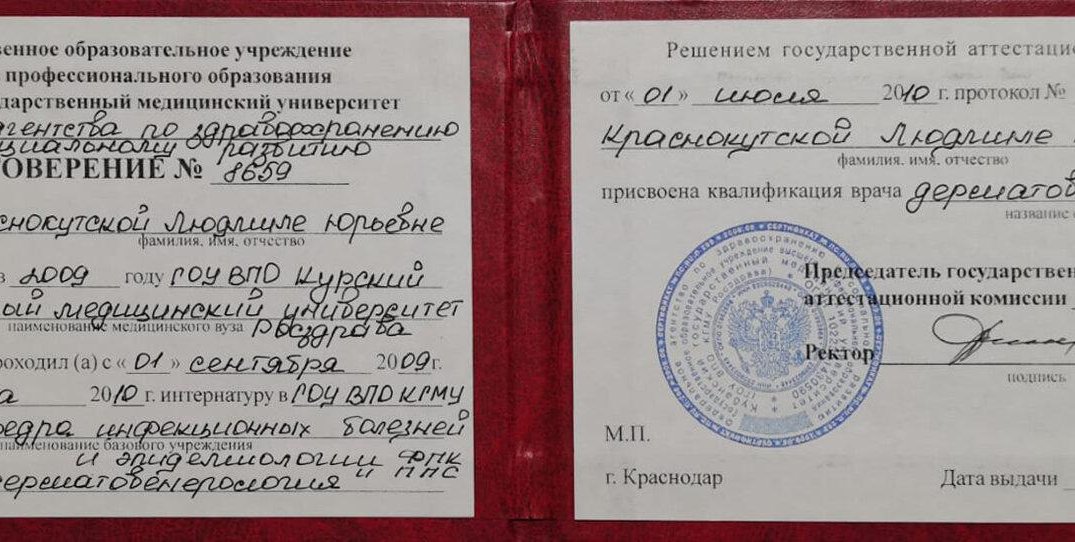 венное образовательное учреждение
профессионального образования
дарственный медицинский университет
агентства по здравоохранению
циальному развитию
ОВЕРЕНИЕ № 8659
снокутской Людмиле Юрьевне
фамилия, имя, отчество
в 2009 году ГОУ ВПО Курский
ый медицинский университет
наименование медицинского вуза Росздрава
роходил (а) с « 01 » сентября 2009г.
а 2010 г. интернатуру в ГОУ ВПО КГМУ
едра инфекционных болезней
наименование базового учреждения
и эпидемиологии ФПК
и ППС
ерматовенерология
Решением государственной аттестацио
от « 01 » июля 2010 г. протокол №
Краснокутской Людмиле
фамилия, имя, отчество
присвоена квалификация врача дерматов
название
Председатель государствен
аттестационной комиссии
Ректор
подпись
М.П.
г. Краснодар
Дата выдачи